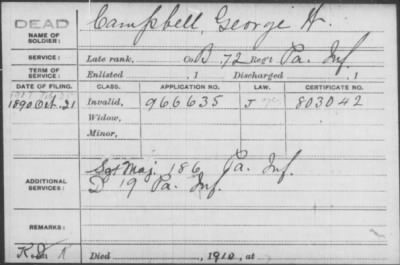 DEAD
NAME OF SOLDIER: Campbell, George H.
SERVICE: Late rank, Co. B, 72 Reg't Pa. Inf.
TERM OF SERVICE: Enlisted , 1 Discharged , 1
DATE OF FILING. CLASS. APPLICATION NO. LAW. CERTIFICATE NO.
1890 Oct. 21 Invalid, 966635 J 803042
Widow,
Minor,
ADDITIONAL SERVICES: Sgt Maj. 186 Pa. Inf.
D 19 Pa. Inf.
REMARKS:
Died , 1910, at